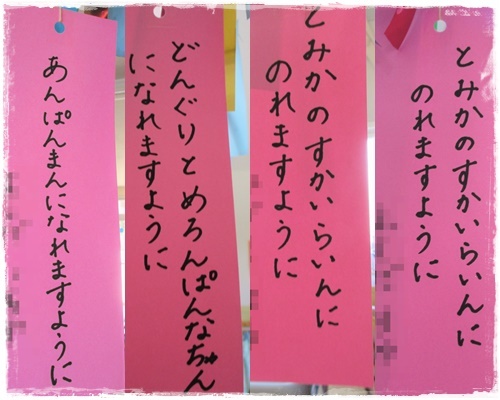 あんぱんまんになれますように
どんぐりとめろんぱんなちゃん
になれますように
とみかのすかいらいんに
のれますように
とみかのすかいらいんに
のれますように